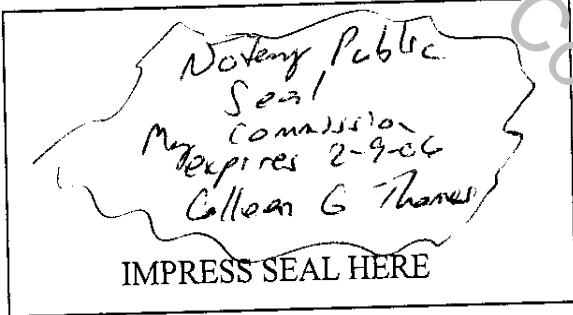 Notary Public
Seal
My Commission
expires 2-9-06
Colleen G Thomas
IMPRESS SEAL HERE
Co